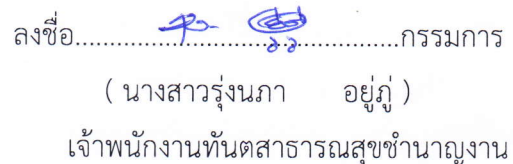 ลงชื่อ............................................กรรมการ
( นางสาวรุ่งนภา อยู่ภู่ )
เจ้าพนักงานทันตสาธารณสุขชำนาญงาน